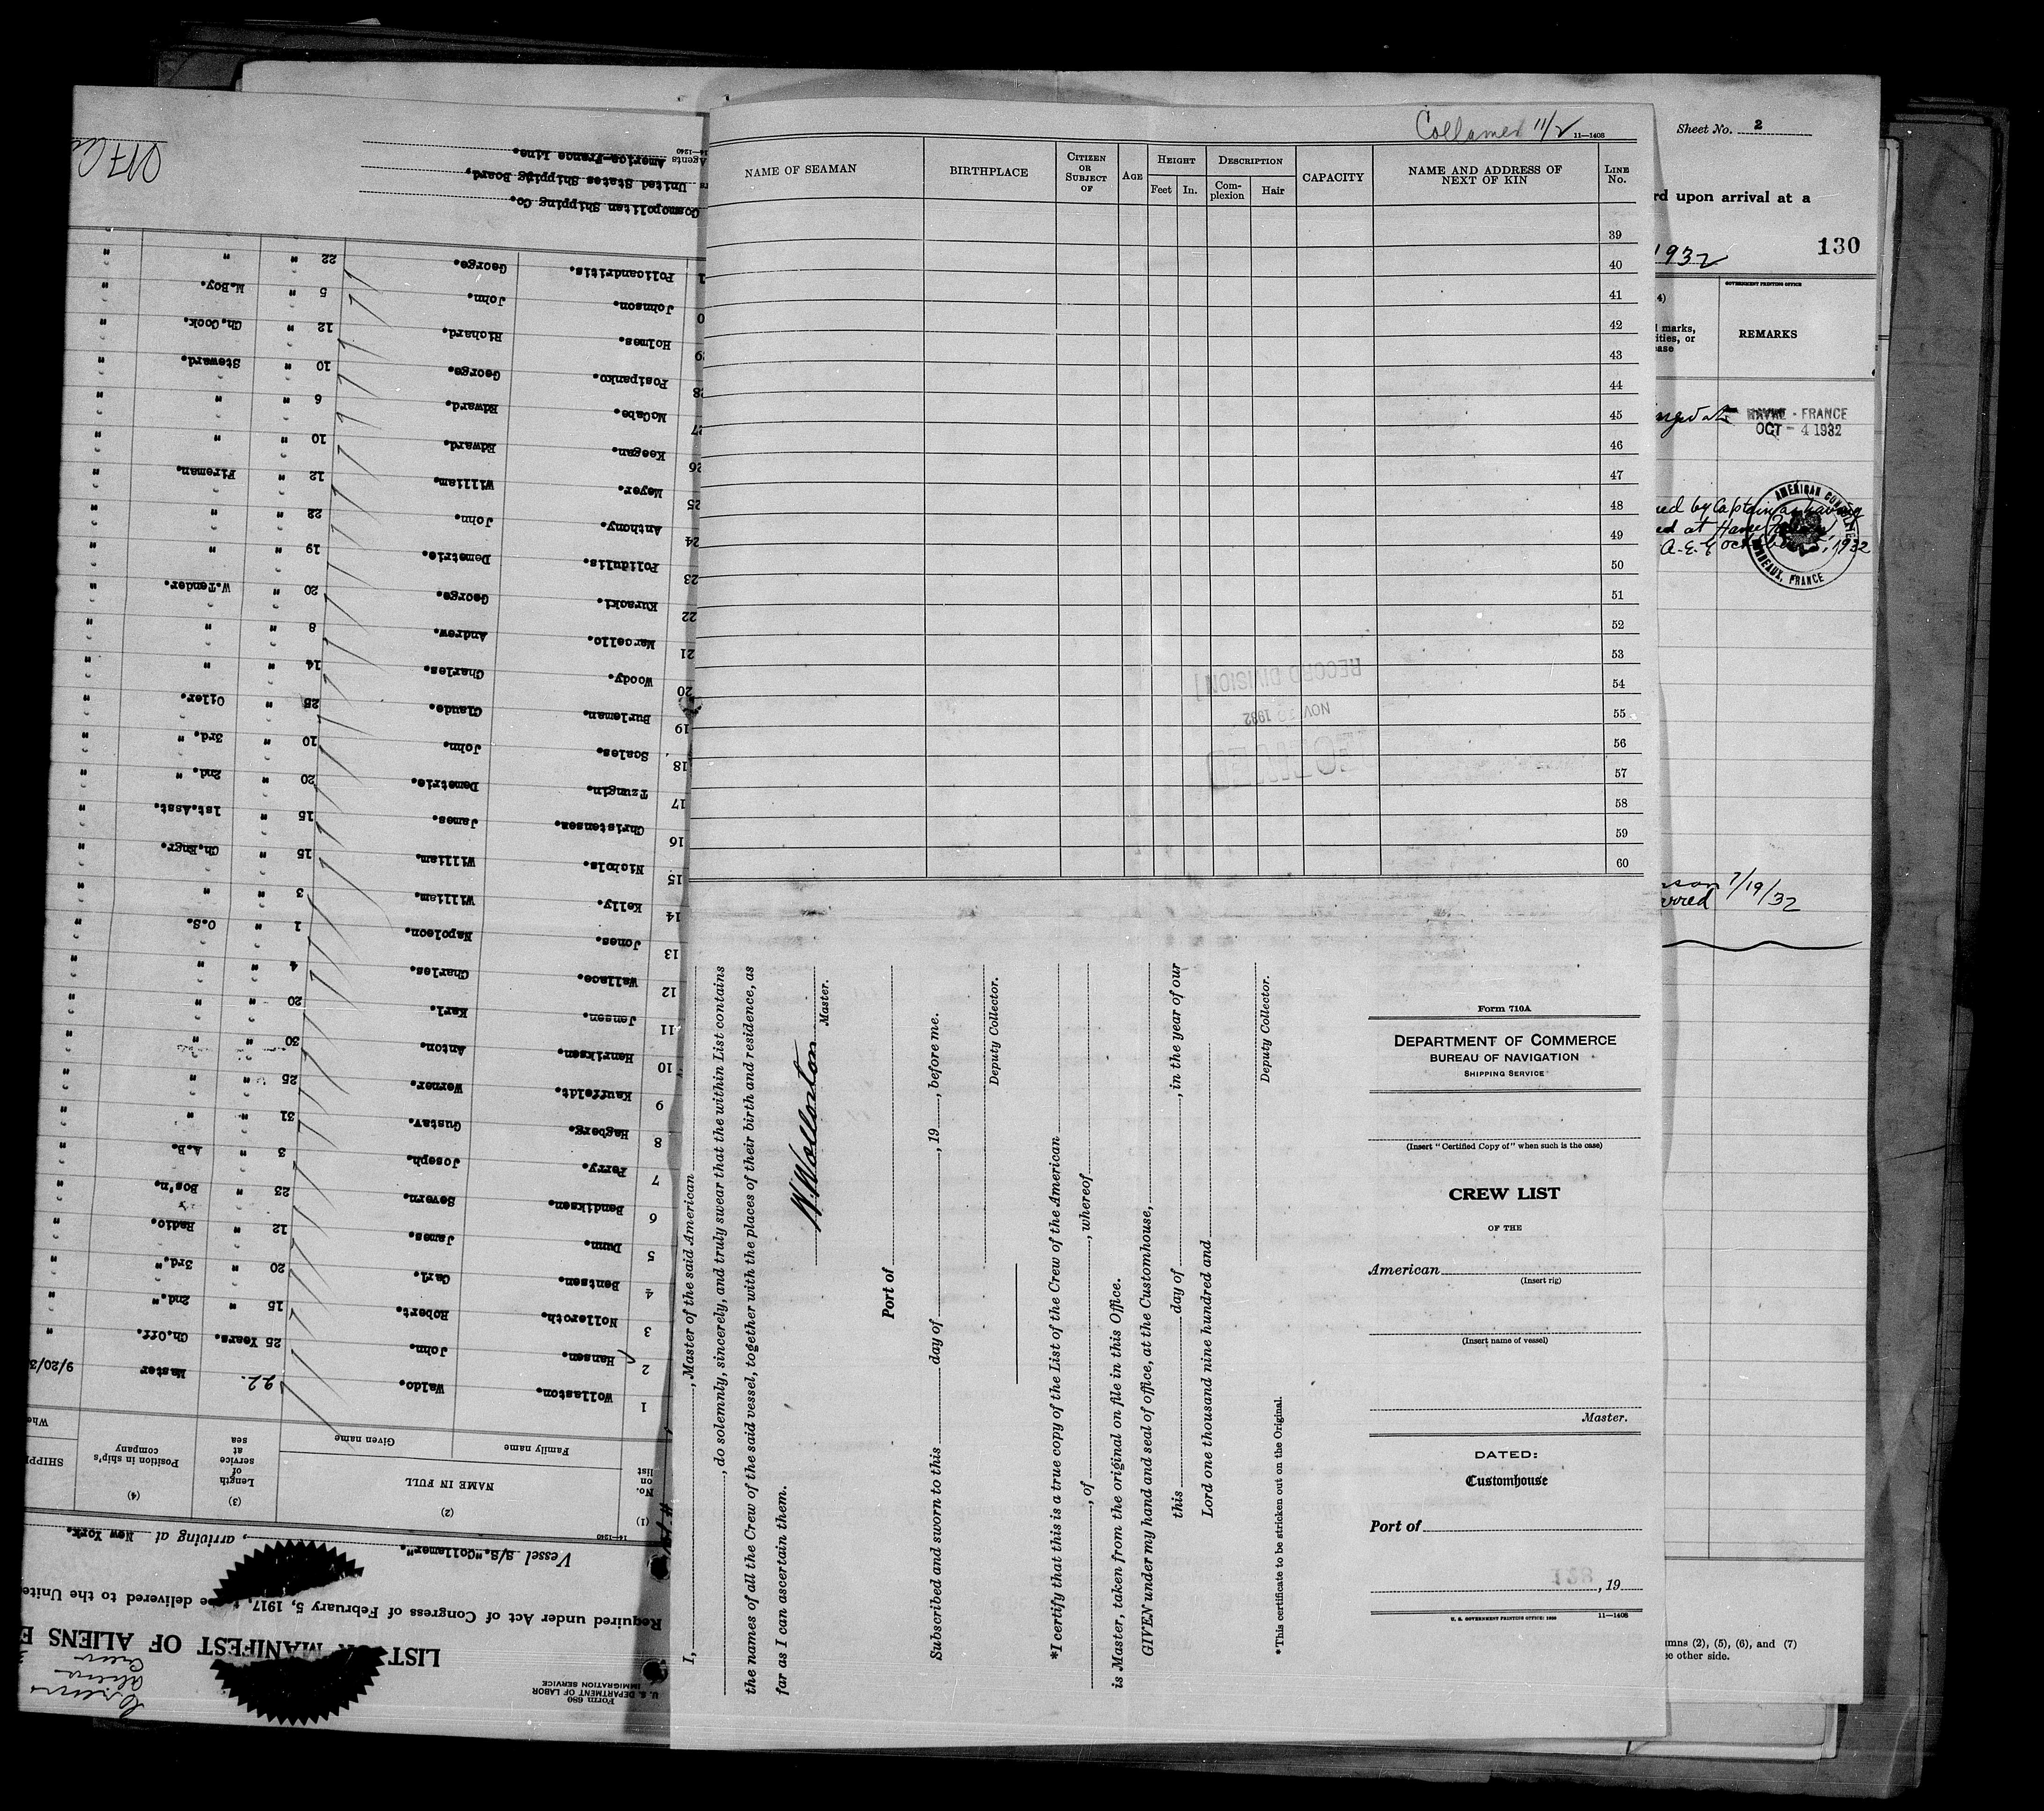 Collamer 11/2
11—1408
NAME OF SEAMAN BIRTHPLACE CITIZEN OR SUBJECT OF AGE HEIGHT Feet In. DESCRIPTION Complexion Hair CAPACITY NAME AND ADDRESS OF NEXT OF KIN LINE No.
39
40
41
42
43
44
45
46
47
48
49
50
51
52
53
54
55
56
57
58
59
60
RECORD DIVISION
NOV 1932
I, , Master of the said American
, do solemnly, sincerely, and truly swear that the within List contains
the names of all the Crew of the said vessel, together with the places of their birth and residence, as
far as I can ascertain them.
Master.
Port of
Subscribed and sworn to this day of , 19 , before me.
Deputy Collector.
*I certify that this is a true copy of the List of the Crew of the American
, of , whereof
is Master, taken from the original on file in this Office.
GIVEN under my hand and seal of office, at the Customhouse,
this day of , in the year of our
Lord one thousand nine hundred and
Deputy Collector.
*This certificate to be stricken out on the Original.
Form 710A
DEPARTMENT OF COMMERCE
BUREAU OF NAVIGATION
SHIPPING SERVICE
(Insert "Certified Copy of" when such is the case)
CREW LIST
OF THE
American
(Insert rig)
(Insert name of vessel)
Master.
DATED:
Customhouse
Port of
, 19
11—1408
Sheet No. 2
rd upon arrival at a
1932
130
GOVERNMENT PRINTING OFFICE
4)
marks,
ities, or
ease
REMARKS
HAVRE - FRANCE
OCT - 4 1932
AMERICAN CONSULATE
BORDEAUX, FRANCE
ned by Captain as having
ed at Havre
A.E.G. 1932
7/19/32
umns (2), (5), (6), and (7)
ee other side.
Form 680
U. S. DEPARTMENT OF LABOR
IMMIGRATION SERVICE
Crew
LIST OR MANIFEST OF ALIENS E
Required under Act of Congress of February 5, 1917, to be delivered to the Unite
Vessel S/S."Collamer". , arriving at New York.
14—1240
(1) (2) (3) (4)
No. on list NAME IN FULL Family name Given name Length of service at sea Position in ship's company SHIPPE Whe
1 Wollaston. Waldo. 22. Master 9/20/3
2 Hansen. John. 25 Years. Ch.Off. "
3 Nolleroth. Robert. 15 " 2nd." "
4 Bentsen. Carl. 20 " 3rd." "
5 Dunn. James. 12 " Radio. "
6 Bendiksen. Severn. 23 " Bos'n. "
7 Perry. Joseph. 3 " A.B. "
8 Hagberg. Gustav. 31 " " "
9 Kauffeldt. Werner. 25 " " "
10 Henriksen. Anton. 30 " " "
11 Jensen. Karl. 20 " " "
12 Wallace. Charles. 4 " " "
13 Jones. Napoleon. 1 " O.S. "
14 Kelly. William. 3 " " "
15 Nichols. William. 15 " Ch.Engr. "
16 Christensen. James. 15 " 1st.Asst "
17 Tzungin. Demetrie. 20 " 2nd. " "
18 Scales. John. 10 " 3rd. " "
19 Burleman. Claude. 25 " Oiler. "
20 Woody. Charles. 14 " " "
21 Marcello. Andrew. 8 " " "
22 Kuracki. George. 20 " W.Tender. "
23 Polidulis. Demetrie. 19 " " "
24 Anthony. John. 22 " " "
25 Meyer. William. 12 " Fireman. "
26 Keegan. Edward. 10 " " "
27 McCabe. Edward. 6 " " "
28 Posipanko. George. 10 " Steward. "
29 Holmes. Richard. 12 " Ch.Cook. "
0 Johnson. John. 5 " M.Boy. "
1 Policandritis. George. 22 " " "
Cosmopolitan Shipping Co.
rs United States Shipping Board.
Agents America-France Line.
14—1240